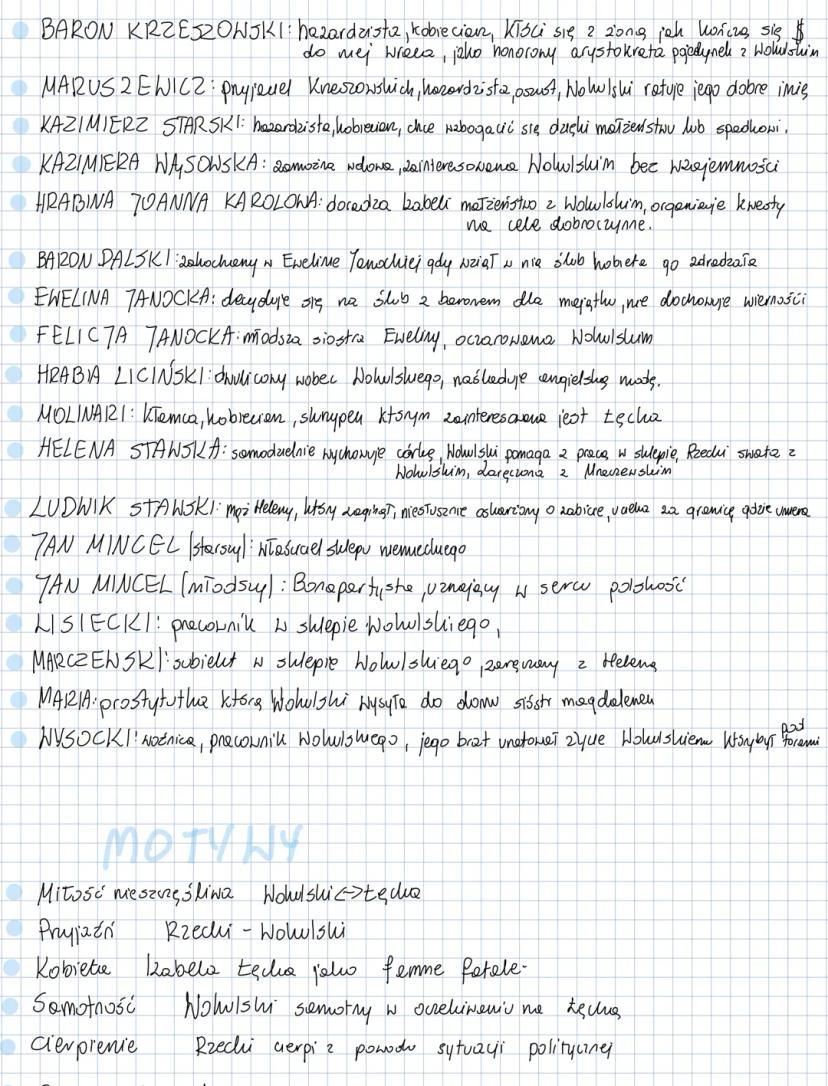 BARON KRZESZOWSKI: hazardzista, kobieciarz, kłóci się z żoną jak kończą się $
do niej wraca, jako honorowy arystokrata pojedynek z Wokulskim
MARUSZEWICZ: przyjaciel Krzeszowskich, hazardzista, oszust, Wokulski ratuje jego dobre imię
KAZIMIERZ STARSKI: hazardzista, kobieciarz, chce wzbogacić się dzięki małżeństwu lub spadkowi.
KAZIMIERA WĄSOWSKA: zamożna wdowa, zainteresowana Wokulskim bez wzajemności
HRABINA JOANNA KAROLOWA: doradza Izabeli małżeństwo z Wokulskim, organizuje kwesty
na cele dobroczynne.
BARON DALSKI: zakochany w Ewelinie Janockiej gdy wziął w nią ślub kobieta go zdradzała
EWELINA JANOCKA: decyduje się na ślub z baronem dla majątku, nie dochowuje wierności
FELICJA JANOCKA: młodsza siostra Eweliny, oczarowana Wokulskim
HRABIA LICIŃSKI: dwulicowy wobec Wokulskiego, naśladuje angielską modę.
MOLINARI: kłamca, kobieciarz, skrzypek którym zainteresowana jest Łęcka
HELENA STAWSKA: samodzielnie wychowuje córkę, Wokulski pomaga z pracą w sklepie, Rzecki swata z
Wokulskim, zaręczona z Mraczewskim
LUDWIK STAWSKI: mąż Heleny, który zaginął, niesłusznie oskarżony o zabicie, ucieka za granicę gdzie umiera
JAN MINCEL (starszy): właściciel sklepu niemieckiego
JAN MINCEL (młodszy): Bonapartysta, uznający w sercu polskość
LISIECKI: pracownik w sklepie Wokulskiego,
MARCZEWSKI: subiekt w sklepie Wokulskiego, zaręczony z Heleną
MARIA: prostytutka którą Wokulski wysyła do domu sióstr magdalenek
WYSOCKI: woźnica, pracownik Wokulskiego, jego brat uratował życie Wokulskiemu który był pod torami
MOTYWY
Miłość nieszczęśliwa Wokulski <-> Łęcka
Przyjaźń Rzecki - Wokulski
Kobieta Izabela Łęcka jako femme fatale-
Samotność Wokulski samotny w oczekiwaniu na Łęcką
Cierpienie Rzecki cierpi z powodu sytuacji politycznej